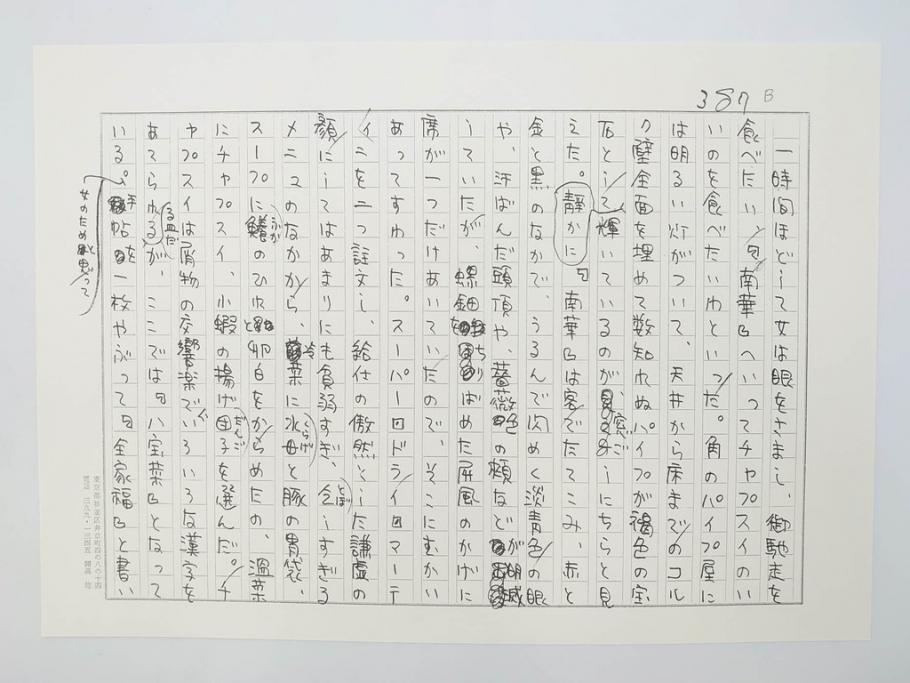 387 B
一時間ほどして女は眼をさまし、御馳走を
食べたい、『南華』へいってチャプスイのい
いのを食べたいわといった。角のパイプ屋に
は明るい灯がついて、天井から床までのコル
ク壁全面を埋めて数知れぬパイプが褐色の宝
石として輝いているのが、窓ごしにちらと見
えた。静かに『南華』は客でたてこみ、赤と
金と黒のなかで、うるんで閃めく淡青色の眼
や、汗ばんだ頭頂や、薔薇色の頬などが明滅
していたが、螺鈿をちりばめた屏風のかげに
席が一つだけあいていたので、そこにむかい
あってすわった。スーパードライのマーテ
ィニを二つ註文し、給仕の傲然とした謙虚の
顔にしてはあまりにも貧弱すぎ、乏しすぎる
メニュのなかから、冷菜に水母と豚の胃袋、
スープに鱶のひれと卵白をからめたの、温菜
にチャプスイ、小蝦の揚げ団子を選んだ。チ
ャプスイは屑物の交響楽で、いろいろな漢字を
あてられる皿だが、ここでは『八宝菜』となって
いる。手帖を一枚やぶって『全家福』と書い
女のためと思って
とぼ
くらげ
ふか
だんご
東京都杉並区井草町四の八の十四
開高 健